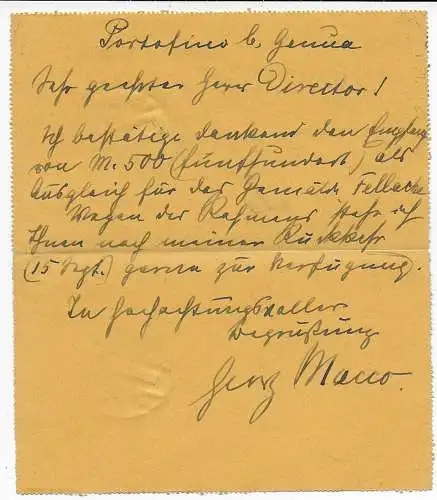 Portofino b. Genua
Sehr geehrter Herr Director!
Ich bestätige dankend den Empfang
von M. 500 (fünfhundert) als
Ausgleich für das Gemälde Fellache
Wegen des Rahmens stehe ich
Ihnen nach meiner Rückkehr
(15 Sept.) gerne zur Verfügung.
In hochachtungsvoller
Begrüßung
Georg Macco.